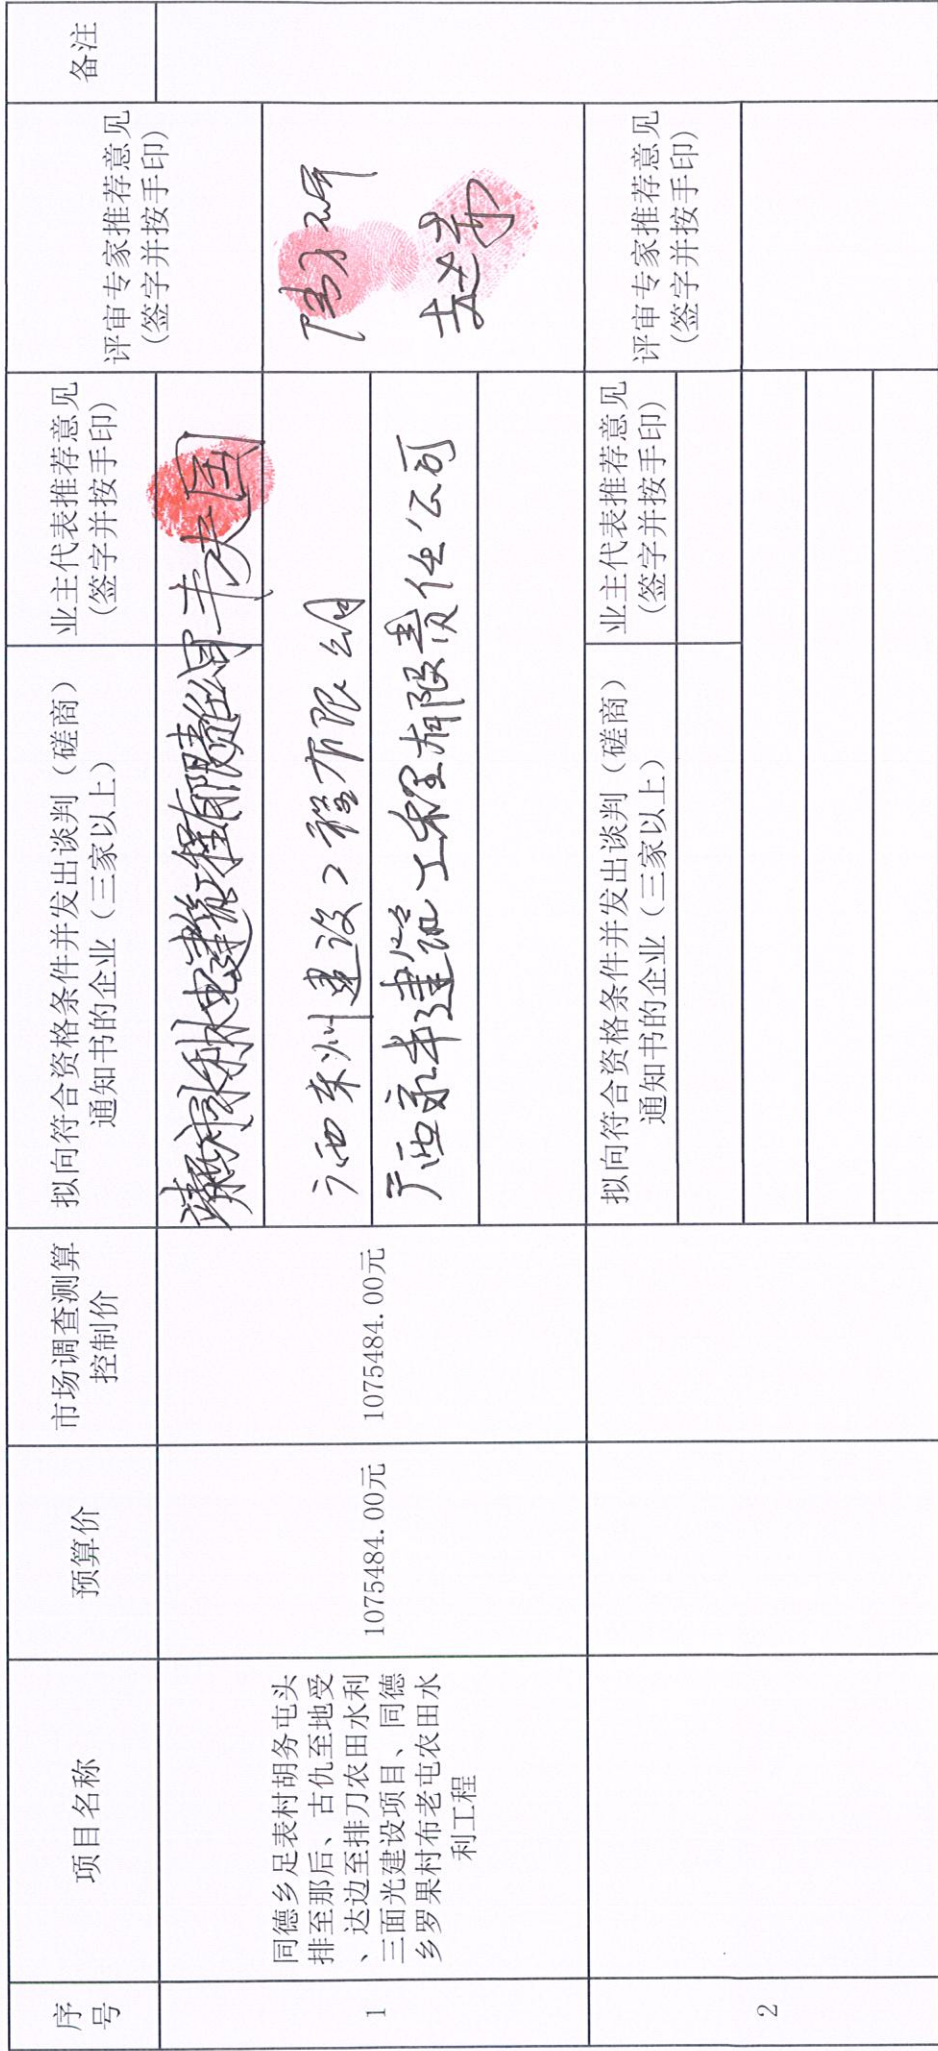 序
号
项目名称
预算价
市场调查测算
控制价
拟向符合资格条件并发出谈判（磋商）
通知书的企业（三家以上）
业主代表推荐意见
(签字并按手印)
评审专家推荐意见
(签字并按手印)
备注
1
同德乡足表村胡务屯头
排至那后、古仇至地受
、达边至排刀农田水利
三面光建设项目、同德
乡罗果村布老屯农田水
利工程
1075484.00元
1075484.00元
水利水电建筑工程有限责任公司
广西东州建设工程有限公司
广西永丰建筑工程有限责任公司
拟向符合资格条件并发出谈判（磋商）
通知书的企业（三家以上）
业主代表推荐意见
(签字并按手印)
评审专家推荐意见
(签字并按手印)
2